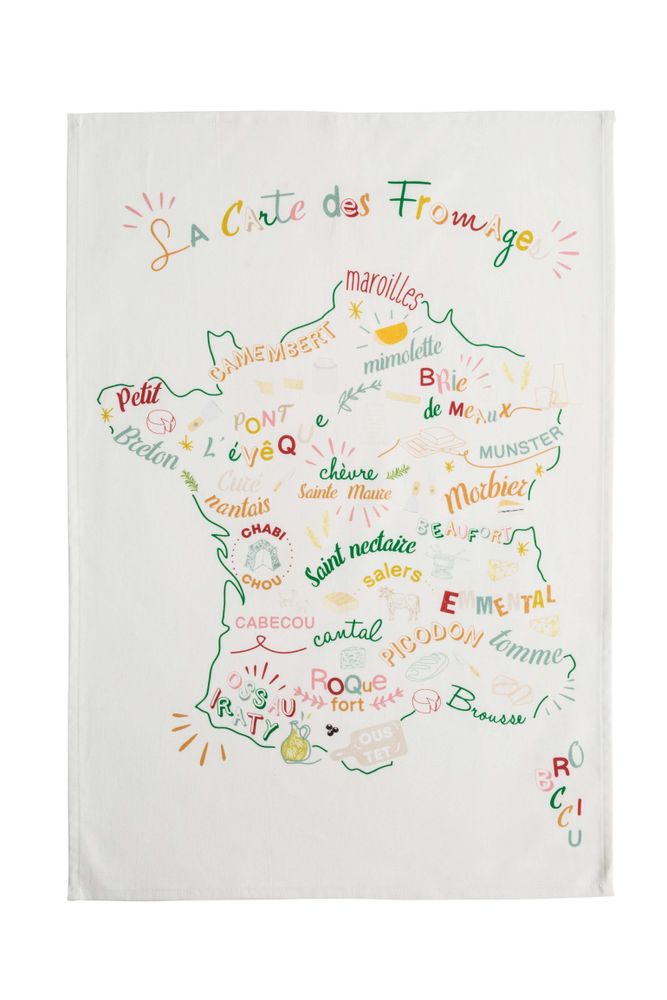 La Carte des Fromages
maroilles
CAMEMBERT
mimolette
Petit
Breton
BRie
de Meaux
PONT
L'évêQUe
MUNSTER
chèvre
Sainte Maure
Curé
nantais
Morbier
BEAUFORT
CHABI
CHOU
Saint nectaire
salers
EMMENTAL
CABECOU
cantal
PICODON
tomme
OSSAU
IRATY
ROQue
fort
Brousse
OUS
TET
BROCCIU